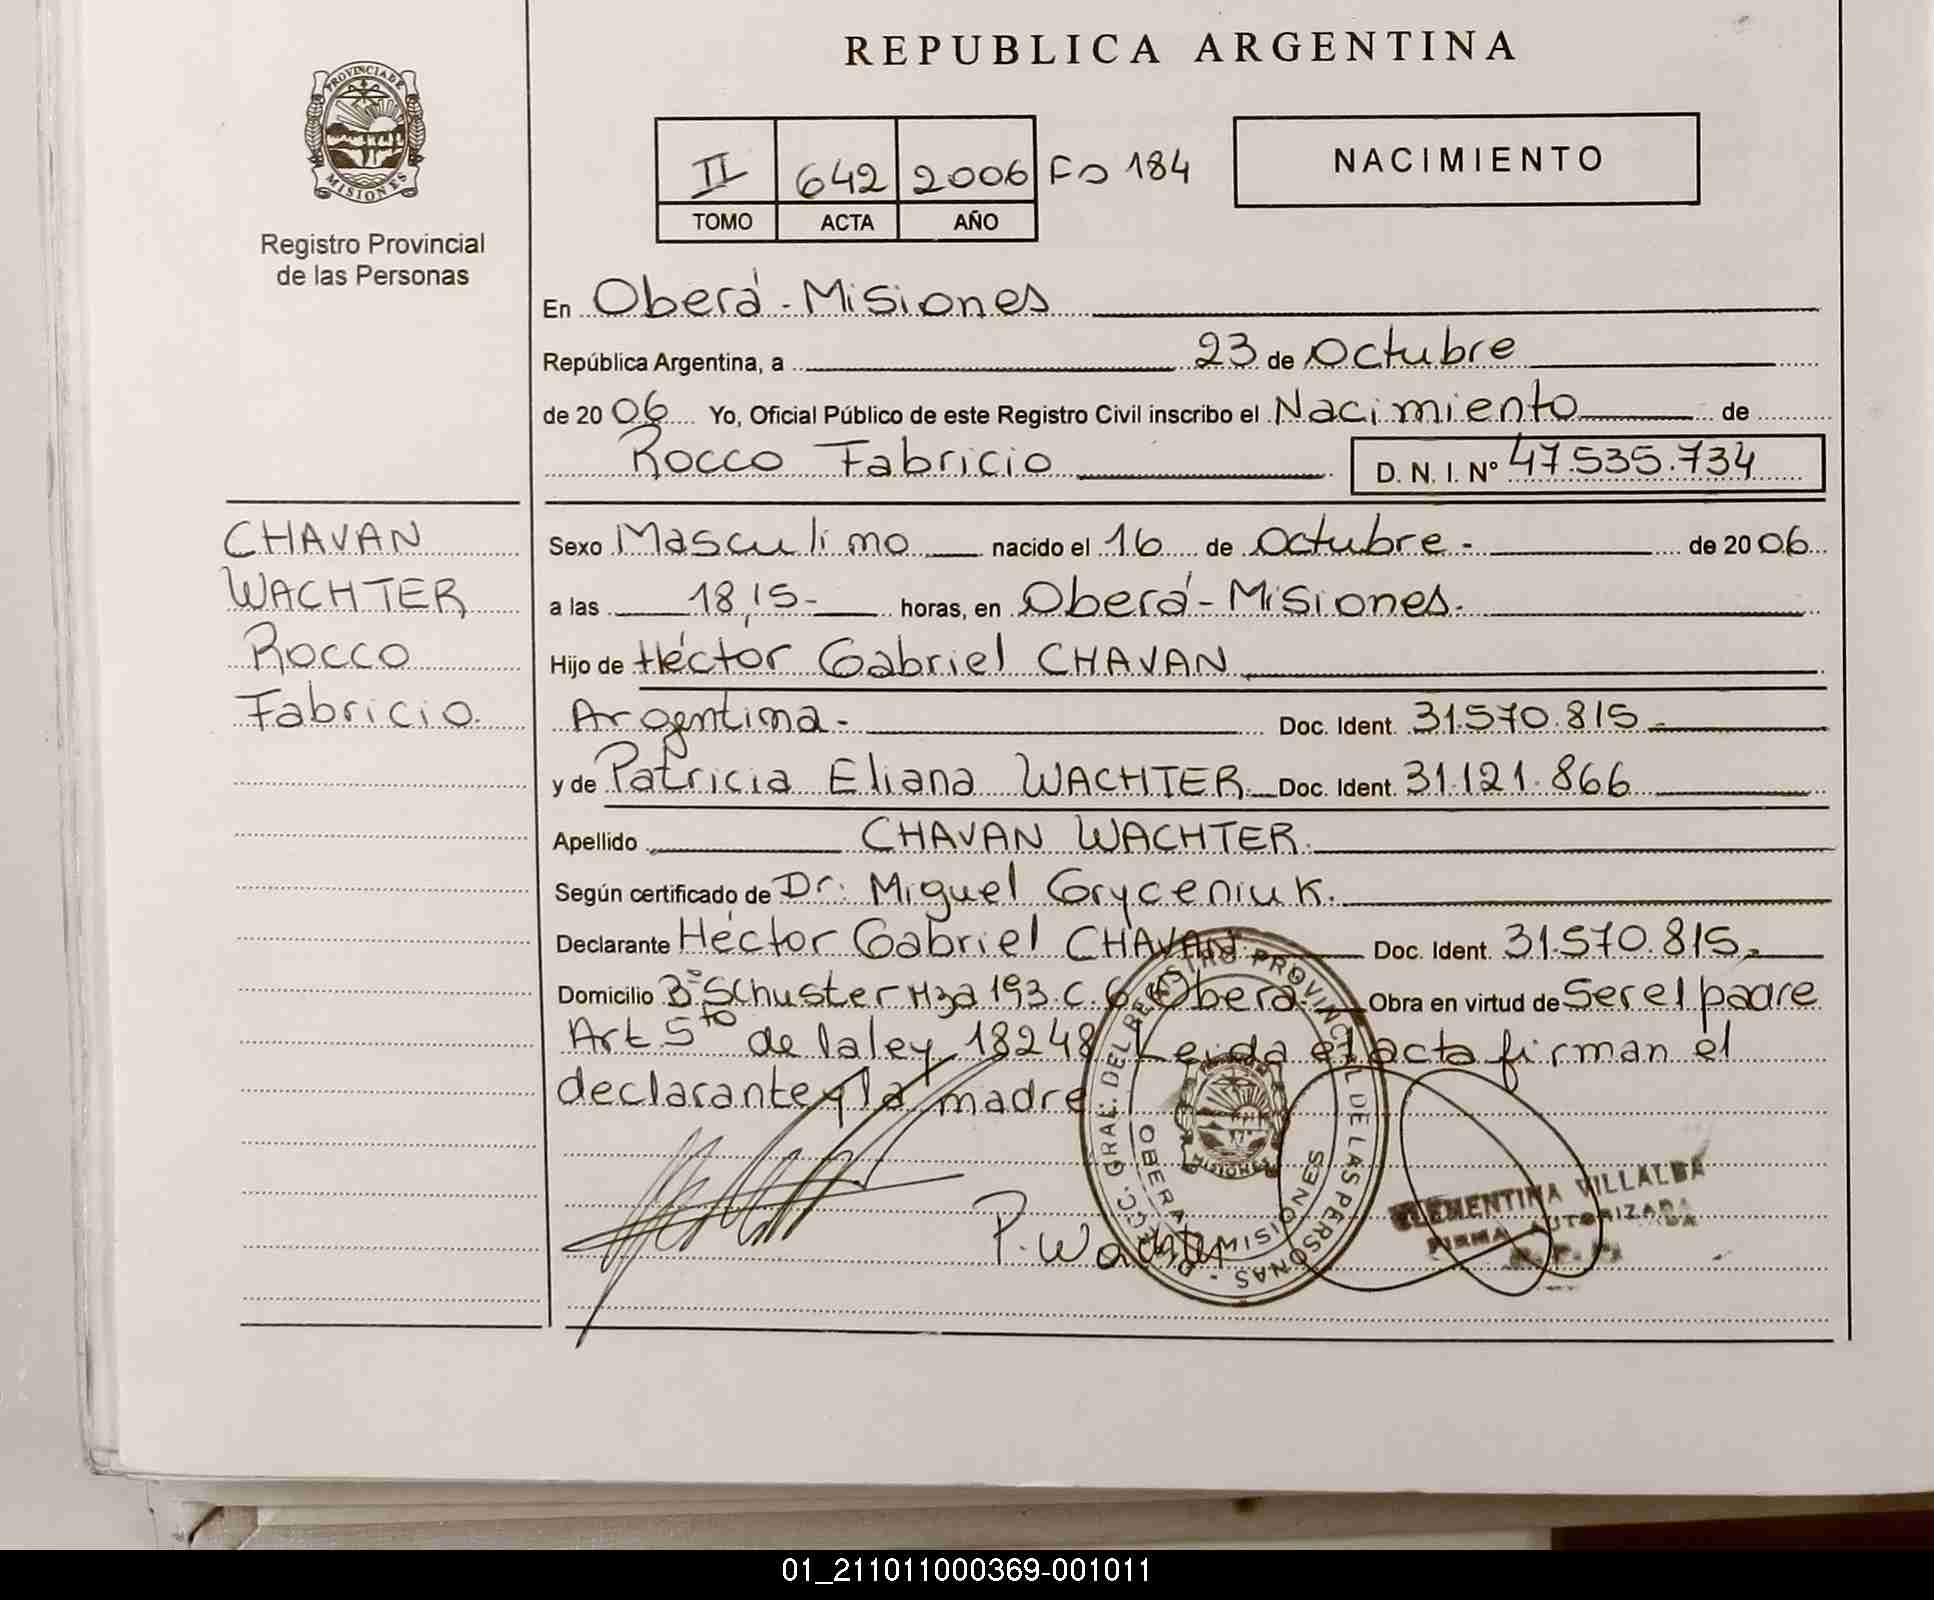 REPUBLICA ARGENTINA
PROVINCIA DE
MISIONES
Registro Provincial
de las Personas
II 642 2006 Fo 184
TOMO ACTA AÑO
NACIMIENTO
En Oberá - Misiones
República Argentina, a 23 de Octubre
de 2006 Yo, Oficial Público de este Registro Civil inscribo el Nacimiento de
Rocco Fabricio D. N. I. Nº 47.535.734
CHAVAN
WACHTER
Rocco
Fabricio.
Sexo Masculino nacido el 16 de Octubre - de 2006
a las 18,15- horas, en Oberá - Misiones.
Hijo de Héctor Gabriel CHAVAN
Argentina - Doc. Ident. 31.570.815
y de Patricia Eliana WACHTER Doc. Ident. 31.121.866
Apellido CHAVAN WACHTER.
Según certificado de Dr. Miguel Gryceniuk.
Declarante Héctor Gabriel CHAVAN Doc. Ident. 31.570.815
Domicilio Bº Schuster Mza 193. C. 6. Oberá. Obra en virtud de Ser el padre
Art 5to de la ley 18248 Leida el acta firman el
declarante y la madre
P. Wachter
GRAL. DEL REGISTRO PROVINCIAL DE LAS PERSONAS
OBERA MISIONES
MISIONES
CLEMENTINA VILLALBA
FIRMA AUTORIZADA
R. P. P.
01_211011000369-001011